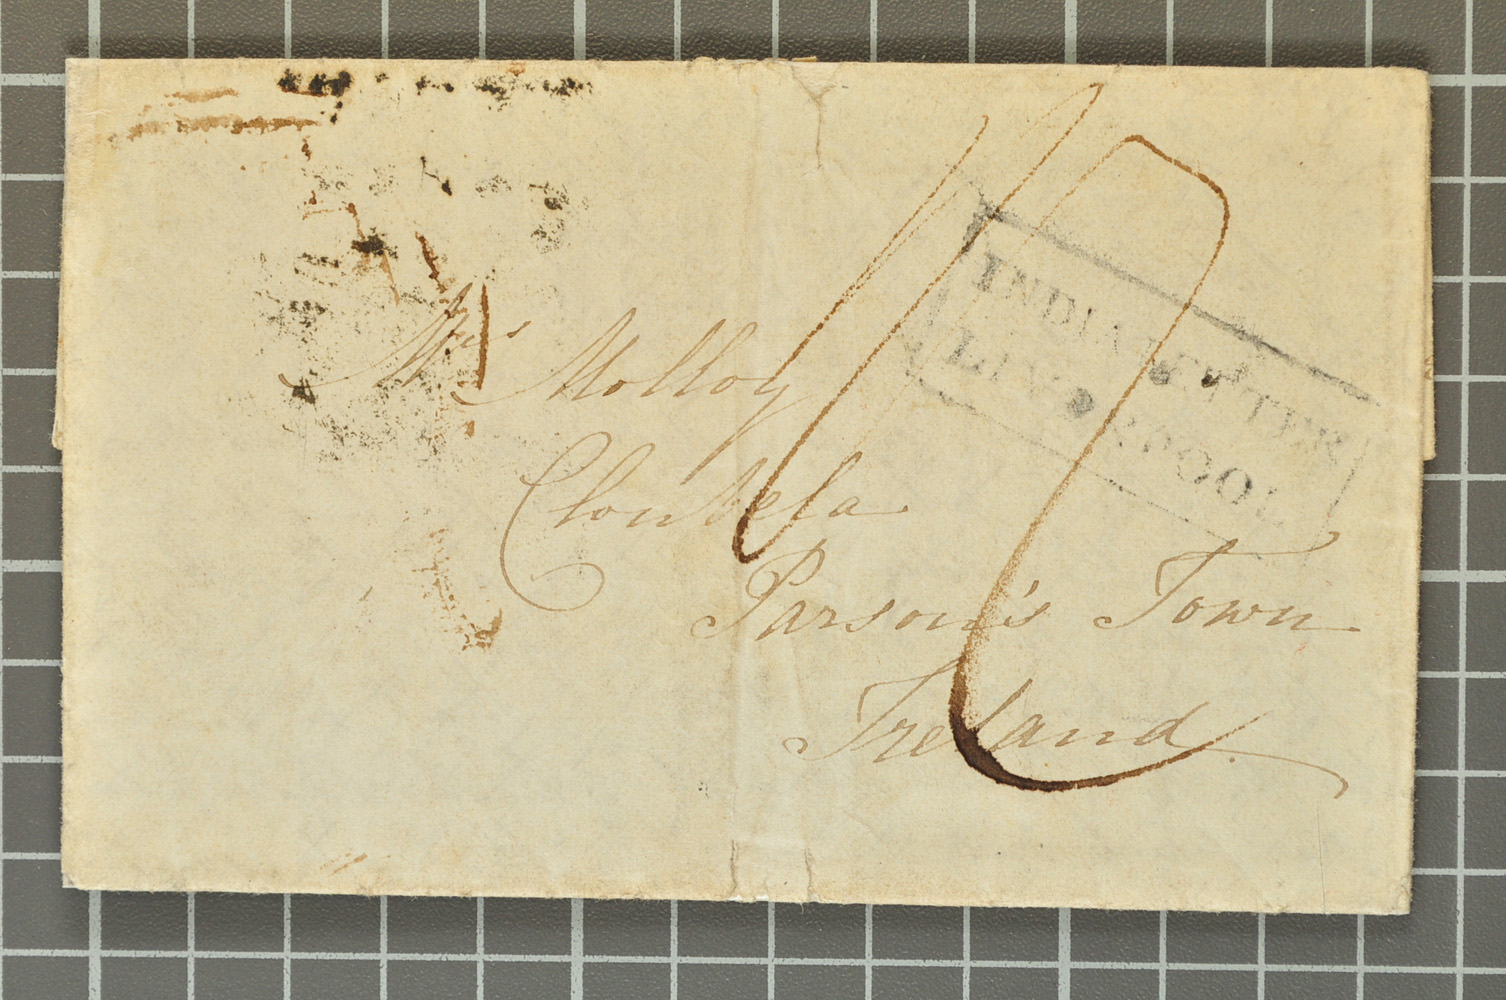 INDIA LETTER
LIVERPOOL
Mrs Molloy
Clonbela
Parson's Town
Ireland.